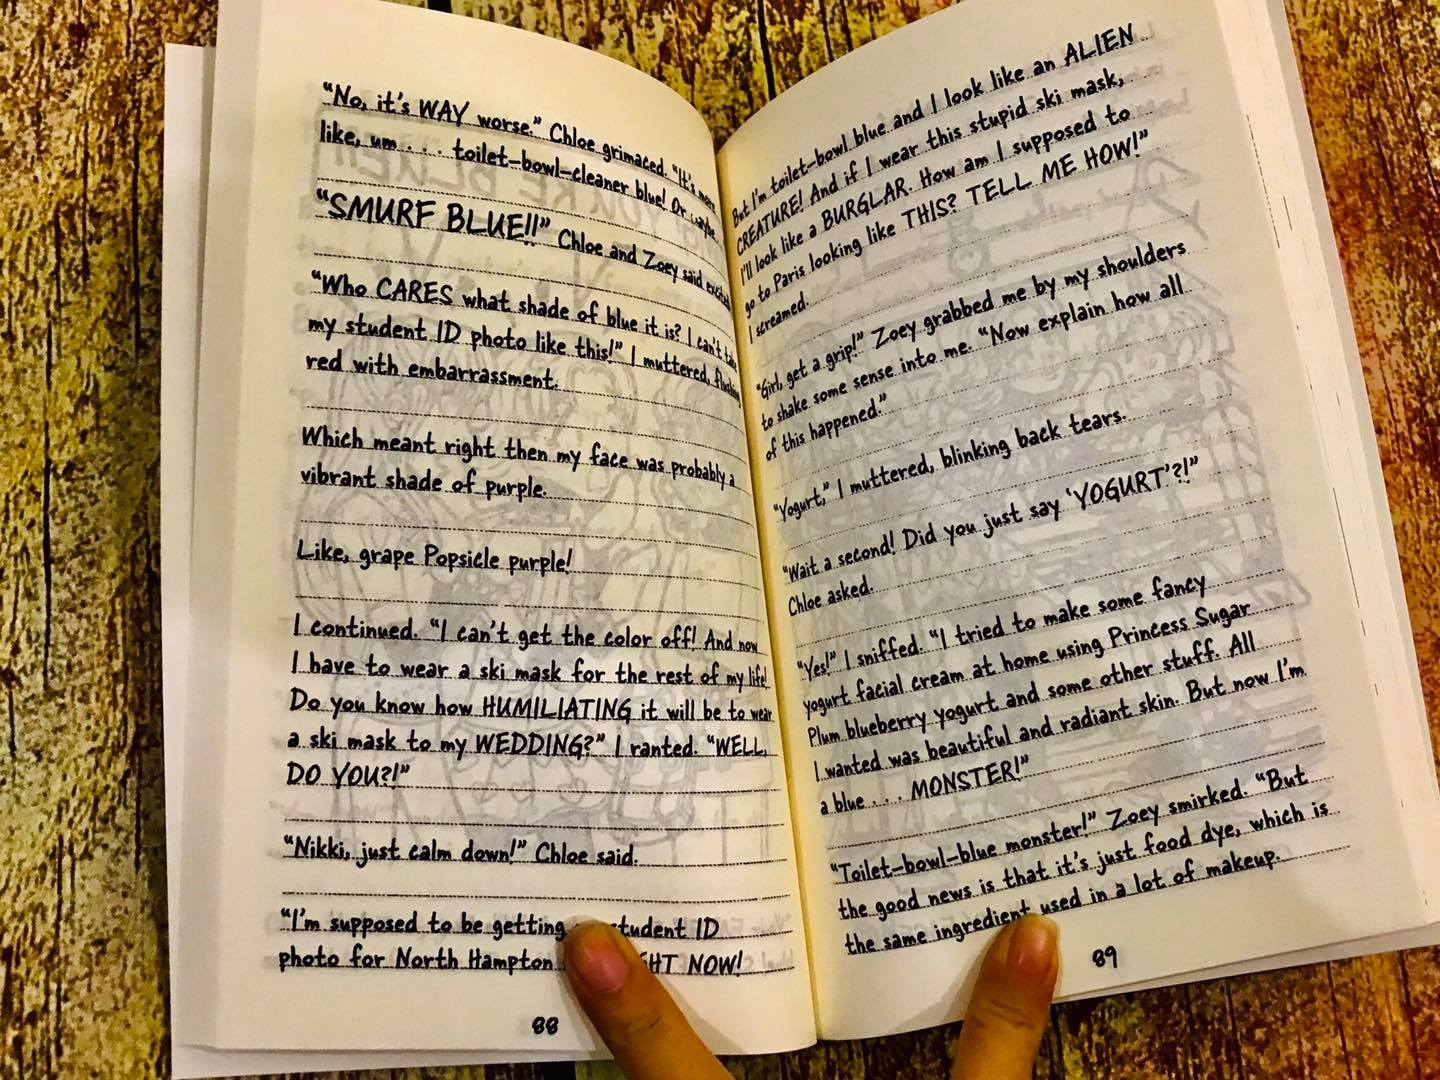 “No, it’s WAY worse.” Chloe grimaced. “It’s more
like, um . . . toilet-bowl-cleaner blue! Or maybe
“SMURF BLUE!!” Chloe and Zoey said
“Who CARES what shade of blue it is? I can’t take
my student ID photo like this!” I muttered, flushing
red with embarrassment.
Which meant right then my face was probably a
vibrant shade of purple.
Like, grape Popsicle purple!
I continued. “I can’t get the color off! And now
I have to wear a ski mask for the rest of my life!
Do you know how HUMILIATING it will be to wear
a ski mask to my WEDDING?” I ranted. “WELL,
DO YOU?!”
“Nikki, just calm down!” Chloe said.
“I’m supposed to be getting student ID
photo for North Hampton NOW!
88
But I’m toilet-bowl blue and I look like an ALIEN
CREATURE! And if I wear this stupid ski mask,
I’ll look like a BURGLAR. How am I supposed to
go to Paris looking like THIS? TELL ME HOW!”
I screamed.
“Girl, get a grip!” Zoey grabbed me by my shoulders
to shake some sense into me. “Now explain how all
of this happened.”
“Yogurt,” I muttered, blinking back tears.
“Wait a second! Did you just say ‘YOGURT’?!”
Chloe asked.
“Yes!” I sniffed. “I tried to make some fancy
yogurt facial cream at home using Princess Sugar
Plum blueberry yogurt and some other stuff. All
I wanted was beautiful and radiant skin. But now I’m
a blue . . . MONSTER!”
“Toilet-bowl-blue monster!” Zoey smirked. “But
the good news is that it’s just food dye, which is
the same ingredient used in a lot of makeup.
89